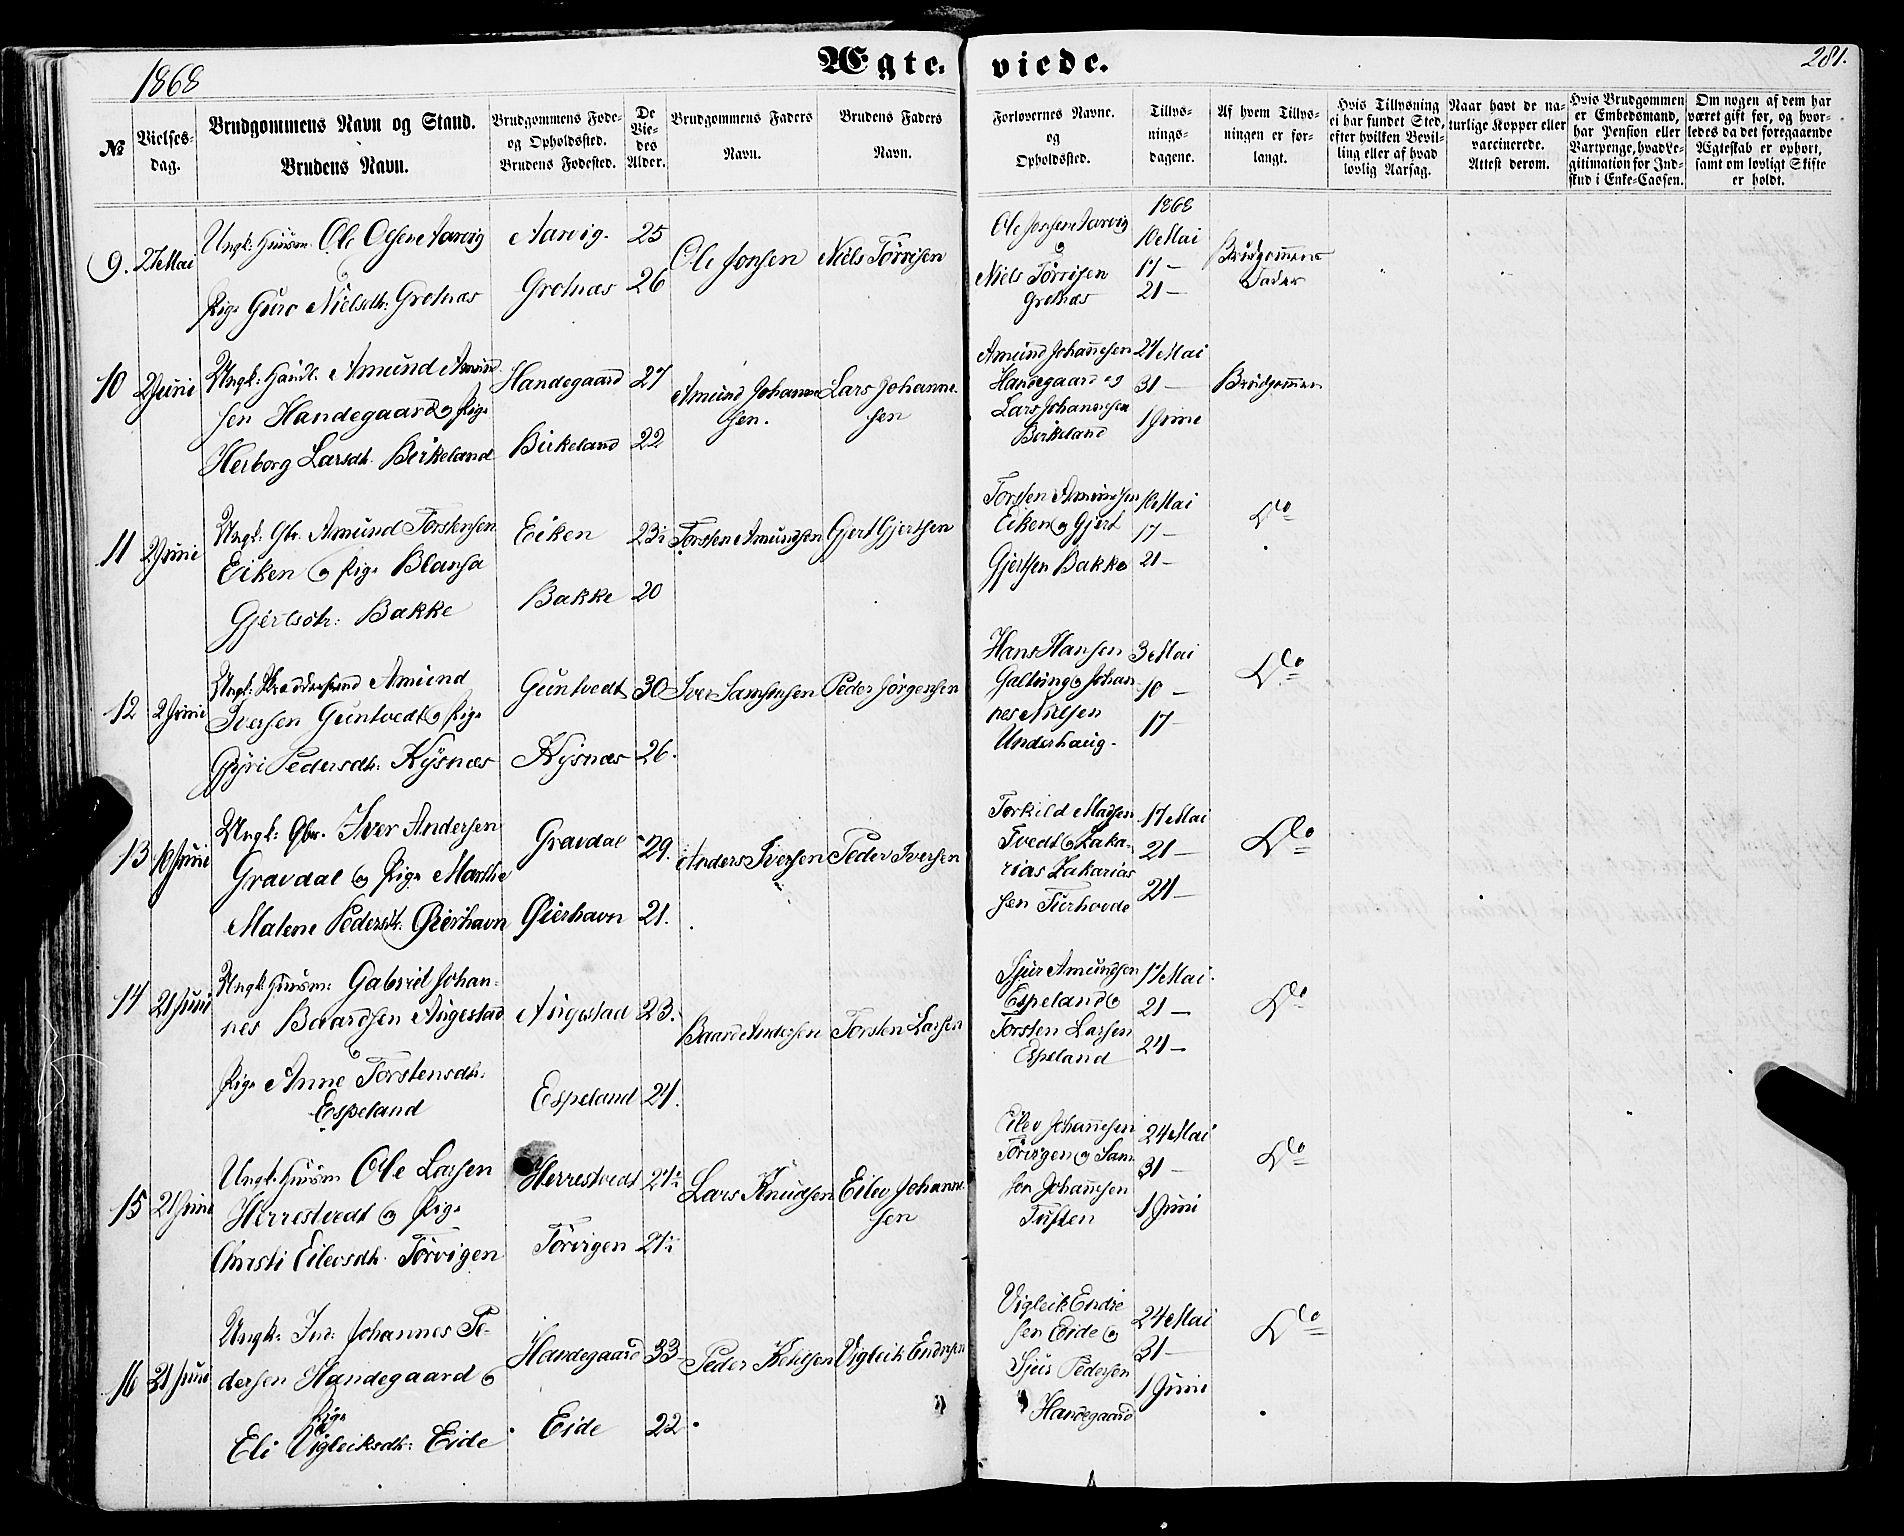 1868
Ægte viede.
281.
№
Vielses-
dag.
Brudgommens Navn og Stand.
Brudens Navn.
Brudgommens Føde-
og Opholdssted.
Brudens Fødested.
De
Vie-
des
Alder.
Brudgommens Faders
Navn.
Brudens Faders
Navn.
Forlovernes Navne.
og
Opholdssted.
Tillys-
nings-
dagene.
Af hvem Tillys-
ningen er for-
langt.
Hvis Tillysning
ei har fundet Sted,
efter hvilken Bevil-
ling eller af hvad
lovlig Aarsag.
Naar havt de na-
turlige Kopper eller
vaccinerede.
Attest derom.
Hvis Brudgommen
er Embedsmand,
har Pension eller
Vartpenge, hvad Le-
gitimation for Ind-
skud i Enke-Cassen.
Om nogen af dem har
været gift før, og hvor-
ledes da det foregaaende
Ægteskab er ophørt,
samt om lovligt Skifte
er holdt.
9. 27 Mai
Ungk: Huusm. Ole Olsen Aarvig
og
Pige Guro Nielsdtr: Grotnæs
Aarvig. 25
Grotnæs 26
Ole Jonsen
Niels Tørrisen
Ole Jonsen Aarvig
og
Niels Tørrisen
Grotnæs
1868
10 Mai
17 —
21 —
Brudgommens
Fader
10 2 Juni
Ungk: Handl. Amund Amund
sen Handegaard og Pige
Herborg Larsdtr. Birkeland
Handegaard 27
Birkeland 22
Amund Johanne
sen.
Lars Johanne
sen
Amund Johannesen
Handegaard og
Lars Johannesen
Birkeland
24 Mai
31 —
1 Juni
Brudgommen
11 2 Juni
Ungk: Gbr. Amund Torstensen
Eiken og Pige Blansa
Gjertsdtr: Bakke
Eiken 23
Bakke 20
Torsten Amundsen
Gjert Gjertsen
Torsten Amundsen
Eiken og Gjert
Gjertsen Bakke
10 Mai
17 —
21 —
Do
12 2 Juni
Ungk: Amund
Iversen Guntvedt og Pige
Gyri Pedersdtr: Kysnæs
Guntvedt 30
Kysnæs 26.
Iver Samsonsen
Peder Jørgensen
Hans Hansen
Galtung og Johan
nes Nielsen
Underhaug.
3 Mai
10 —
17 —
Do
13 10 Juni
Ungk: Gbr. Iver Andersen
Gravdal og Pige Marthe
Malene Pedersdtr. Gierhavn
Gravdal 29.
Gierhavn 21.
Anders Iversen
Peder Iversen
Torkild Madsen
Tvedt og Zaka-
rias Zakarias
sen Turhovde
17 Mai
21 —
24 —
Do
14 21 Juni
Ungk: Huusm: Gabriel Johan-
nes Baardsen Augestad
og
Pige Anne Torstensdtr.
Espeland
Augestad 23.
Espeland 24.
Baard Andersen
Torsten Larsen
Sjur Amundsen
Espeland og
Torsten Larsen
Espeland
17 Mai.
21 —
24 —
Do
15 21 Juni
Ungk: Huusm Ole Larsen
Herrestvedt og Pige
Christi Eilevsdtr. Tørvigen
Herrestvedt 24
Tørvigen 24
Lars Knudsen
Eilev Johanne
sen
Eilev Johannesen
Tørvigen og Sam
son Johannesen
Tuften
24 Mai
31 —
1 Juni
Do
16 21 Juni
Ungk: Ind: Johannes Pe-
dersen Handegaard og
Pige
Eli Vigleiksdtr: Eide
Handegaard 33
Eide 22
Peder Ketilsen
Vigleik Endresen
Vigleik Endre
sen Eide og
Sjur Pedersen
Handegaard
24 Mai
31 —
1 Juni
Do